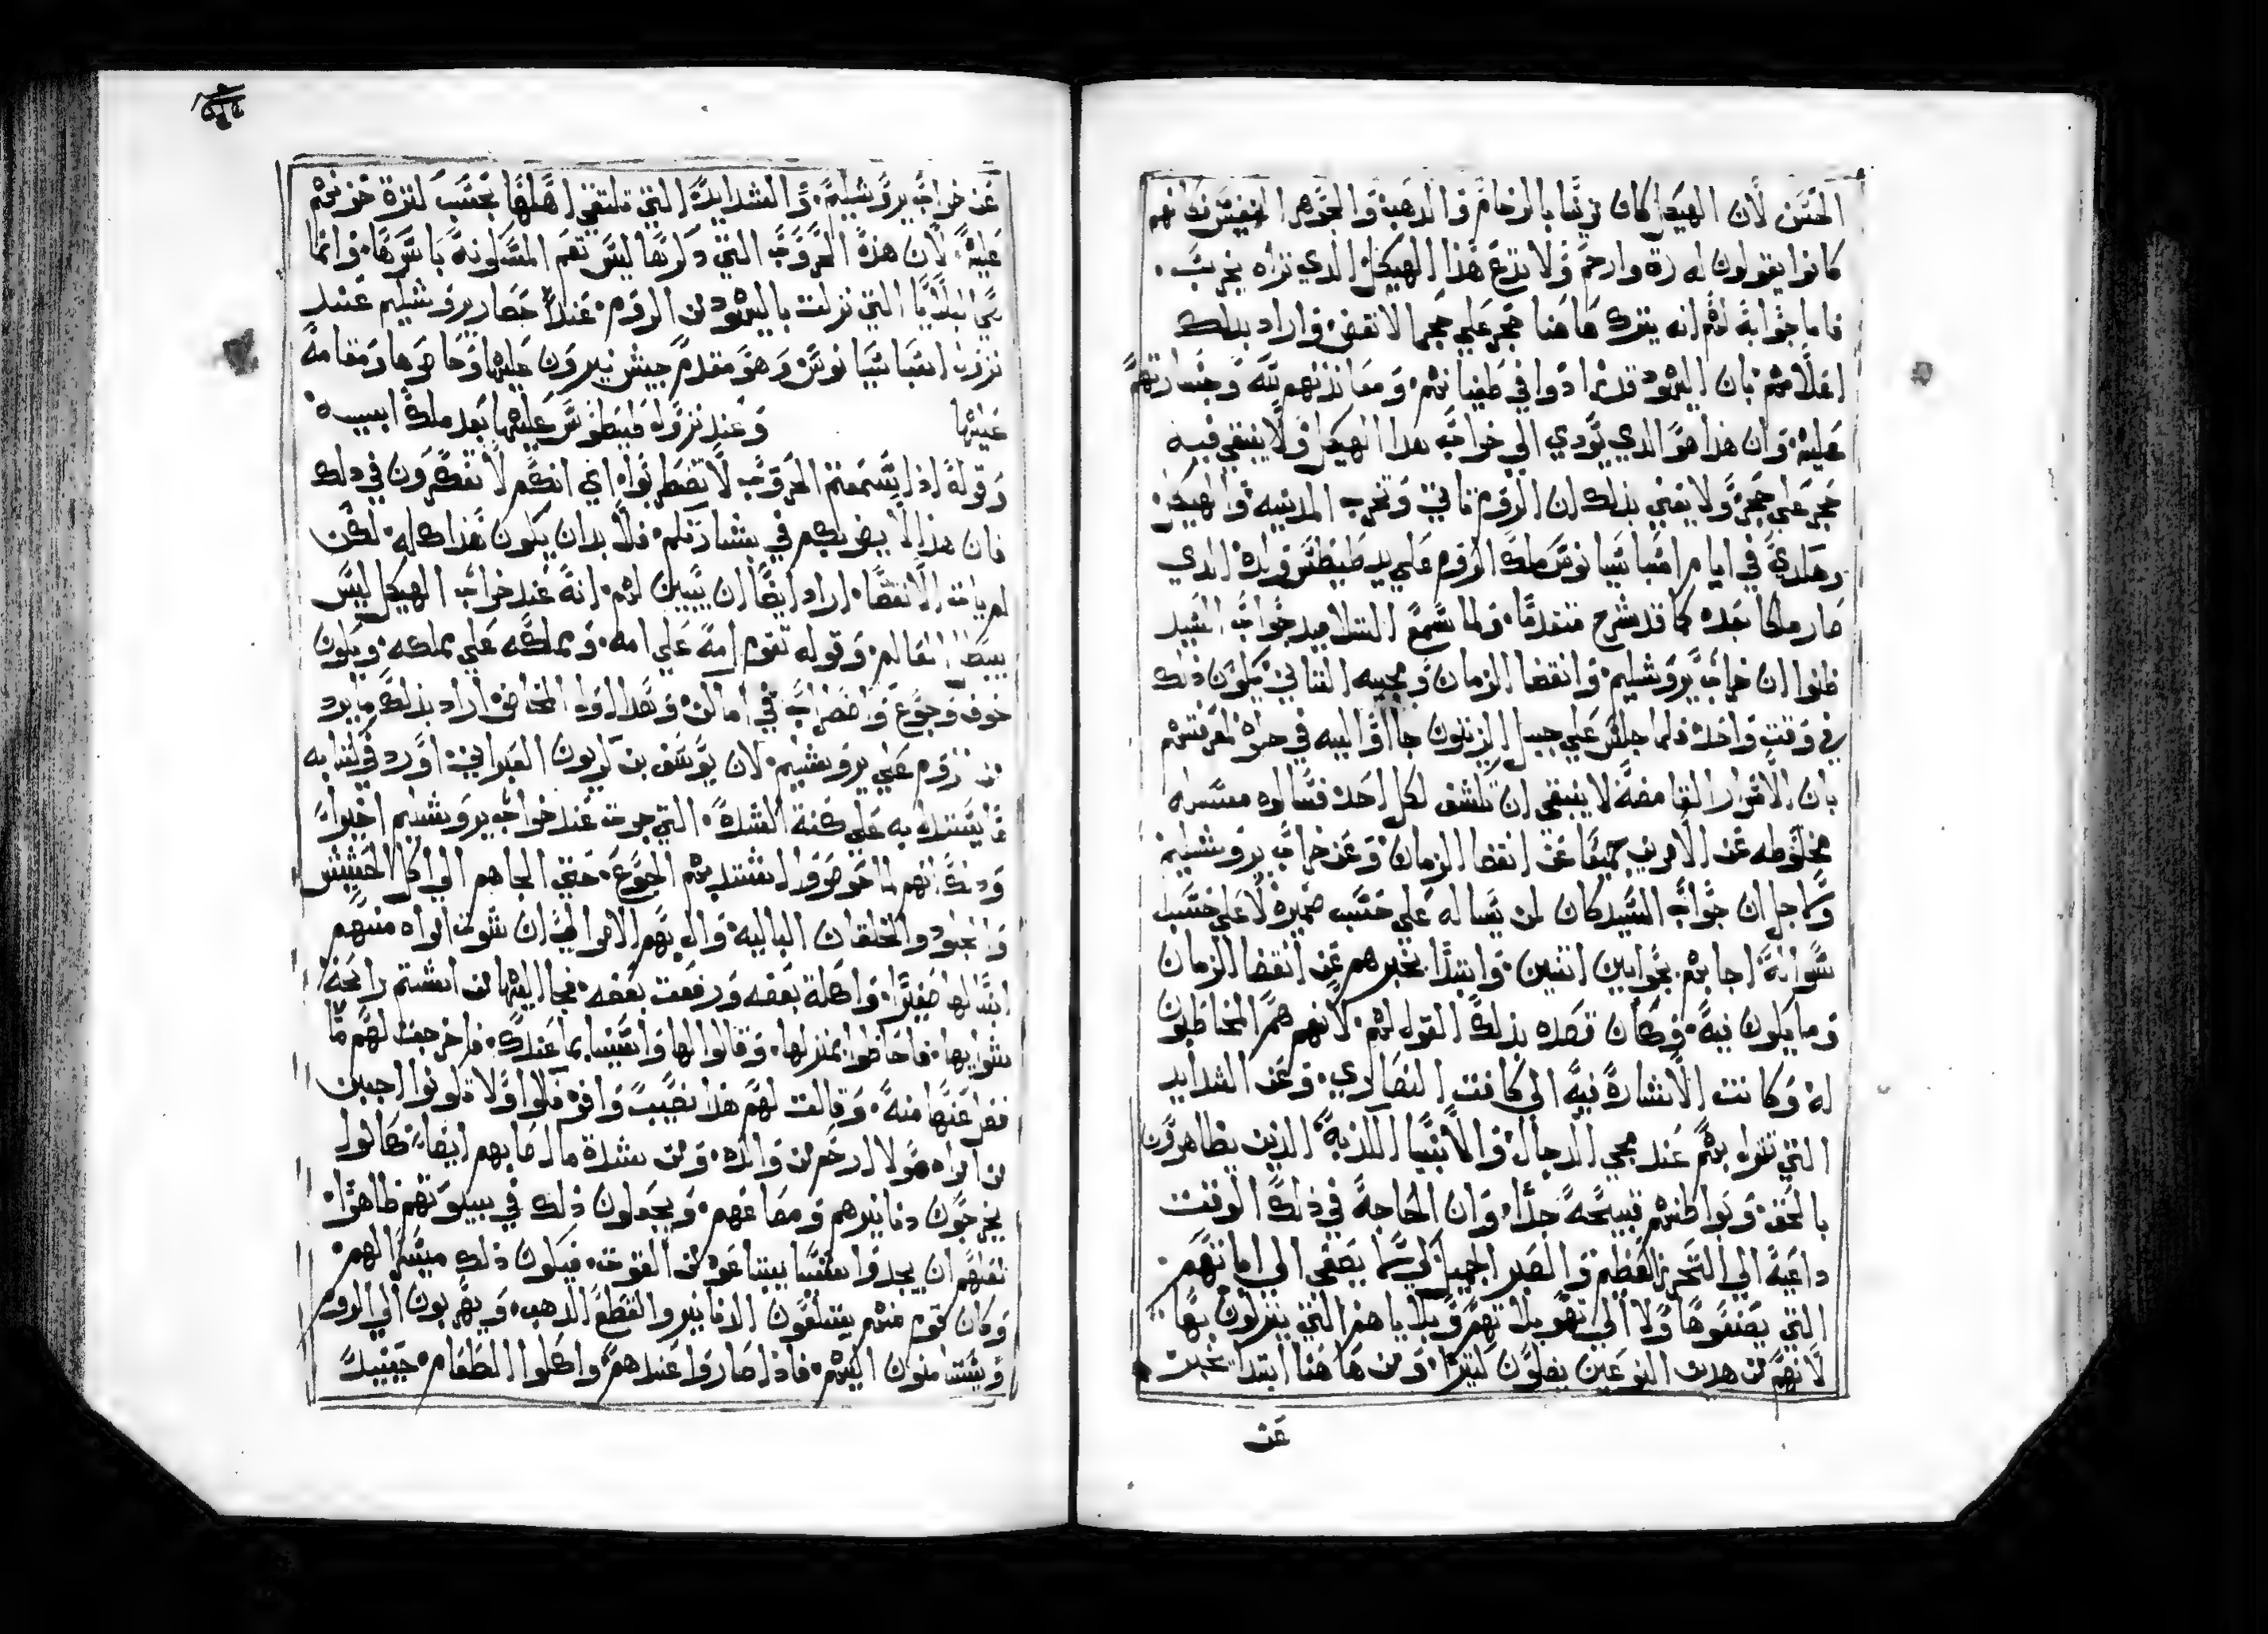 الحسن لان الهيكل كان مزينا بالرخام والدهب والجوهر النفيس فكانهم
كانوا يقولون له رق وارحم ولا تدع هذا الهيكل الدي تراه يخرب
فاما جوابه لهم انه يترك هاهنا حجر علي حجر الا نقض واراد بدلك
اعلامهم بان اليهود قد زادوا في طغيانهم ومعاندتهم لله وجسارتهم
عليه وان هذا هو الدي يودي الي خراب هدا الهيكل ولا يبقي فيه
حجر علي حجر ولا يعني بذلك ان الروم تاتي وتخرب المدينه والهيكل
وهلدي في ايام اسباسيانوس ملك الروم علي يد طيطس ولده الدي
صار ملكا بعده كما قد شرح متقدما ولما سمع التلاميد جواب السيد
ظنوا ان خراب يروشليم وانقضا الزمان ومجيه التاني يكون ذلك
في وقت واحد فلما جلس علي جبل الزيتون جااوا اليه في خلوه لمعرفتهم
بان الاسرار الغامضه لا ينبغي ان تكشف لكل احد فسالوه مسله
مخلوطه عن الامرين جميعا عن انقضا الزمان وعن خراب يروشليم
وكاجل ان جواب السيد كان لمن يساله علي حسب ضميره لا علي حسب
سواله اجابهم بجوابين اتنين وابتدا يخبرهم عن انقضا الزمان
وما يكون فيه وكان قصده بذلك القول لهم لانهم هم المخاطبون
له وكانت الاشاره فيه الي كافت النصاري وعن الشدايد
التي تنزل بهم عند مجي الدجال والانبيا الكذبه الذين يظاهرون
بالحق وبواطنهم قبيحه جدا وان الحاجه في ذلك الوقت
داعيه الي التحرز العظيم والصبر الجميل لي لا يصغي الي اياتهم
التي يصنعوها ولا الي تهويلاتهم وبلاياهم التي ينزلون بها
لانهم من هدين النوعين يضلون كتيرا ومن هاهنا ابتدا يخبر
عن
عن خراب يروشليم والشدايد التي تلتقي اهلها بحسب كترة حزنهم
عليه لان هذه الحروب التي دكرها ليس تعم المسكونه باسرها وانما
هي البلايا التي نزلت باليهود من الروم عند حصار يروشليم عند
نزول اسباسيانوس وهو مقدم جيش نيرون عليها وحاصرها ومقامه
عليها وعند نزول طيطوس عليها بعد ملك ابيه
وقوله اذا سمعتم الحروب لا تضطربوا اي انكم لا تفكرون في دلك
فان هذا لا يضربكم في بشارتكم فلا بد ان يكون هدا كله لكن
لم يات الانقضا اراد ايضا ان يبين لهم انه عند خراب الهيكل ليس
يبطل العالم وقوله تقوم امه علي امه ومملكه علي مملكه ويكون
خوف وجوع واضطراب في اماكن وهدا اول المخاض اراد بذلك ما يرد
من الروم علي يروشليم لان يوسف بن كريون العبراني اورد في كتابه
ما يستدل به علي كنة الشده التي جرت عند خراب يروشليم اخيرا
وذلك انهم لما حوصروا اشتد بهم الجوع حتي الجاهم الي اكل الحشيش
والجلود والخلقان الباليه وال بهم الامر الي ان شوت امراه منهم
ابنا لها صغيرا واكلة بعضه ورفعت بعضه فجا اليها من اشتم رايحة
شوايها فاحاطوا بمنزلها وقالوا لها واسينا بما عندك فاخرجت لهم ما
فضل عنها منه وقالت لهم هذا نصيب وافر فكلوا ولا تكونوا اجبن
من امراه ولا ارحم من والده ومن شدة ما اصابهم ايضا كانوا
يخرجون دنانيرهم ومصاغهم ويجعلون ذلك في بيوتهم ظاهرا
لعلهم ان يجدوا شيا يبتاعوه من القوت فيكون ذلك ميسرا لهم
وكان قوم منهم يبتلعون الدنانير والقطع الدهب ويهربون الي الروم
ويستامنون اليهم فاذا صاروا عندهم واكلوا الطعام حينيد